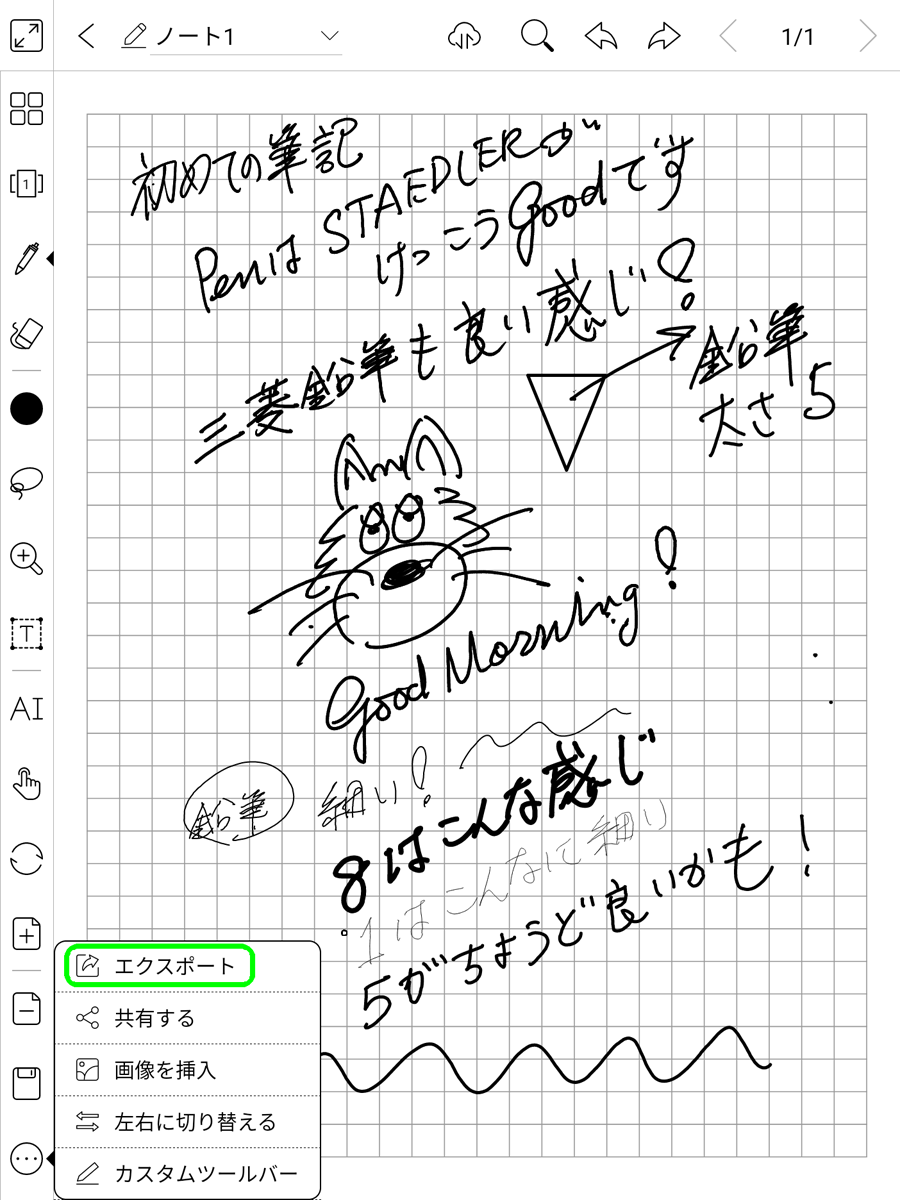 ノート1
1/1
初めての筆記
Penは STAEDLERが
けっこうGoodです
三菱鉛筆も良い感じ!
鉛筆
太さ5
Good Morning!
鉛筆 細い!
8はこんな感じ
1はこんなに細い
5がちょうど良いかも!
1
T
AI
エクスポート
共有する
画像を挿入
左右に切り替える
カスタムツールバー